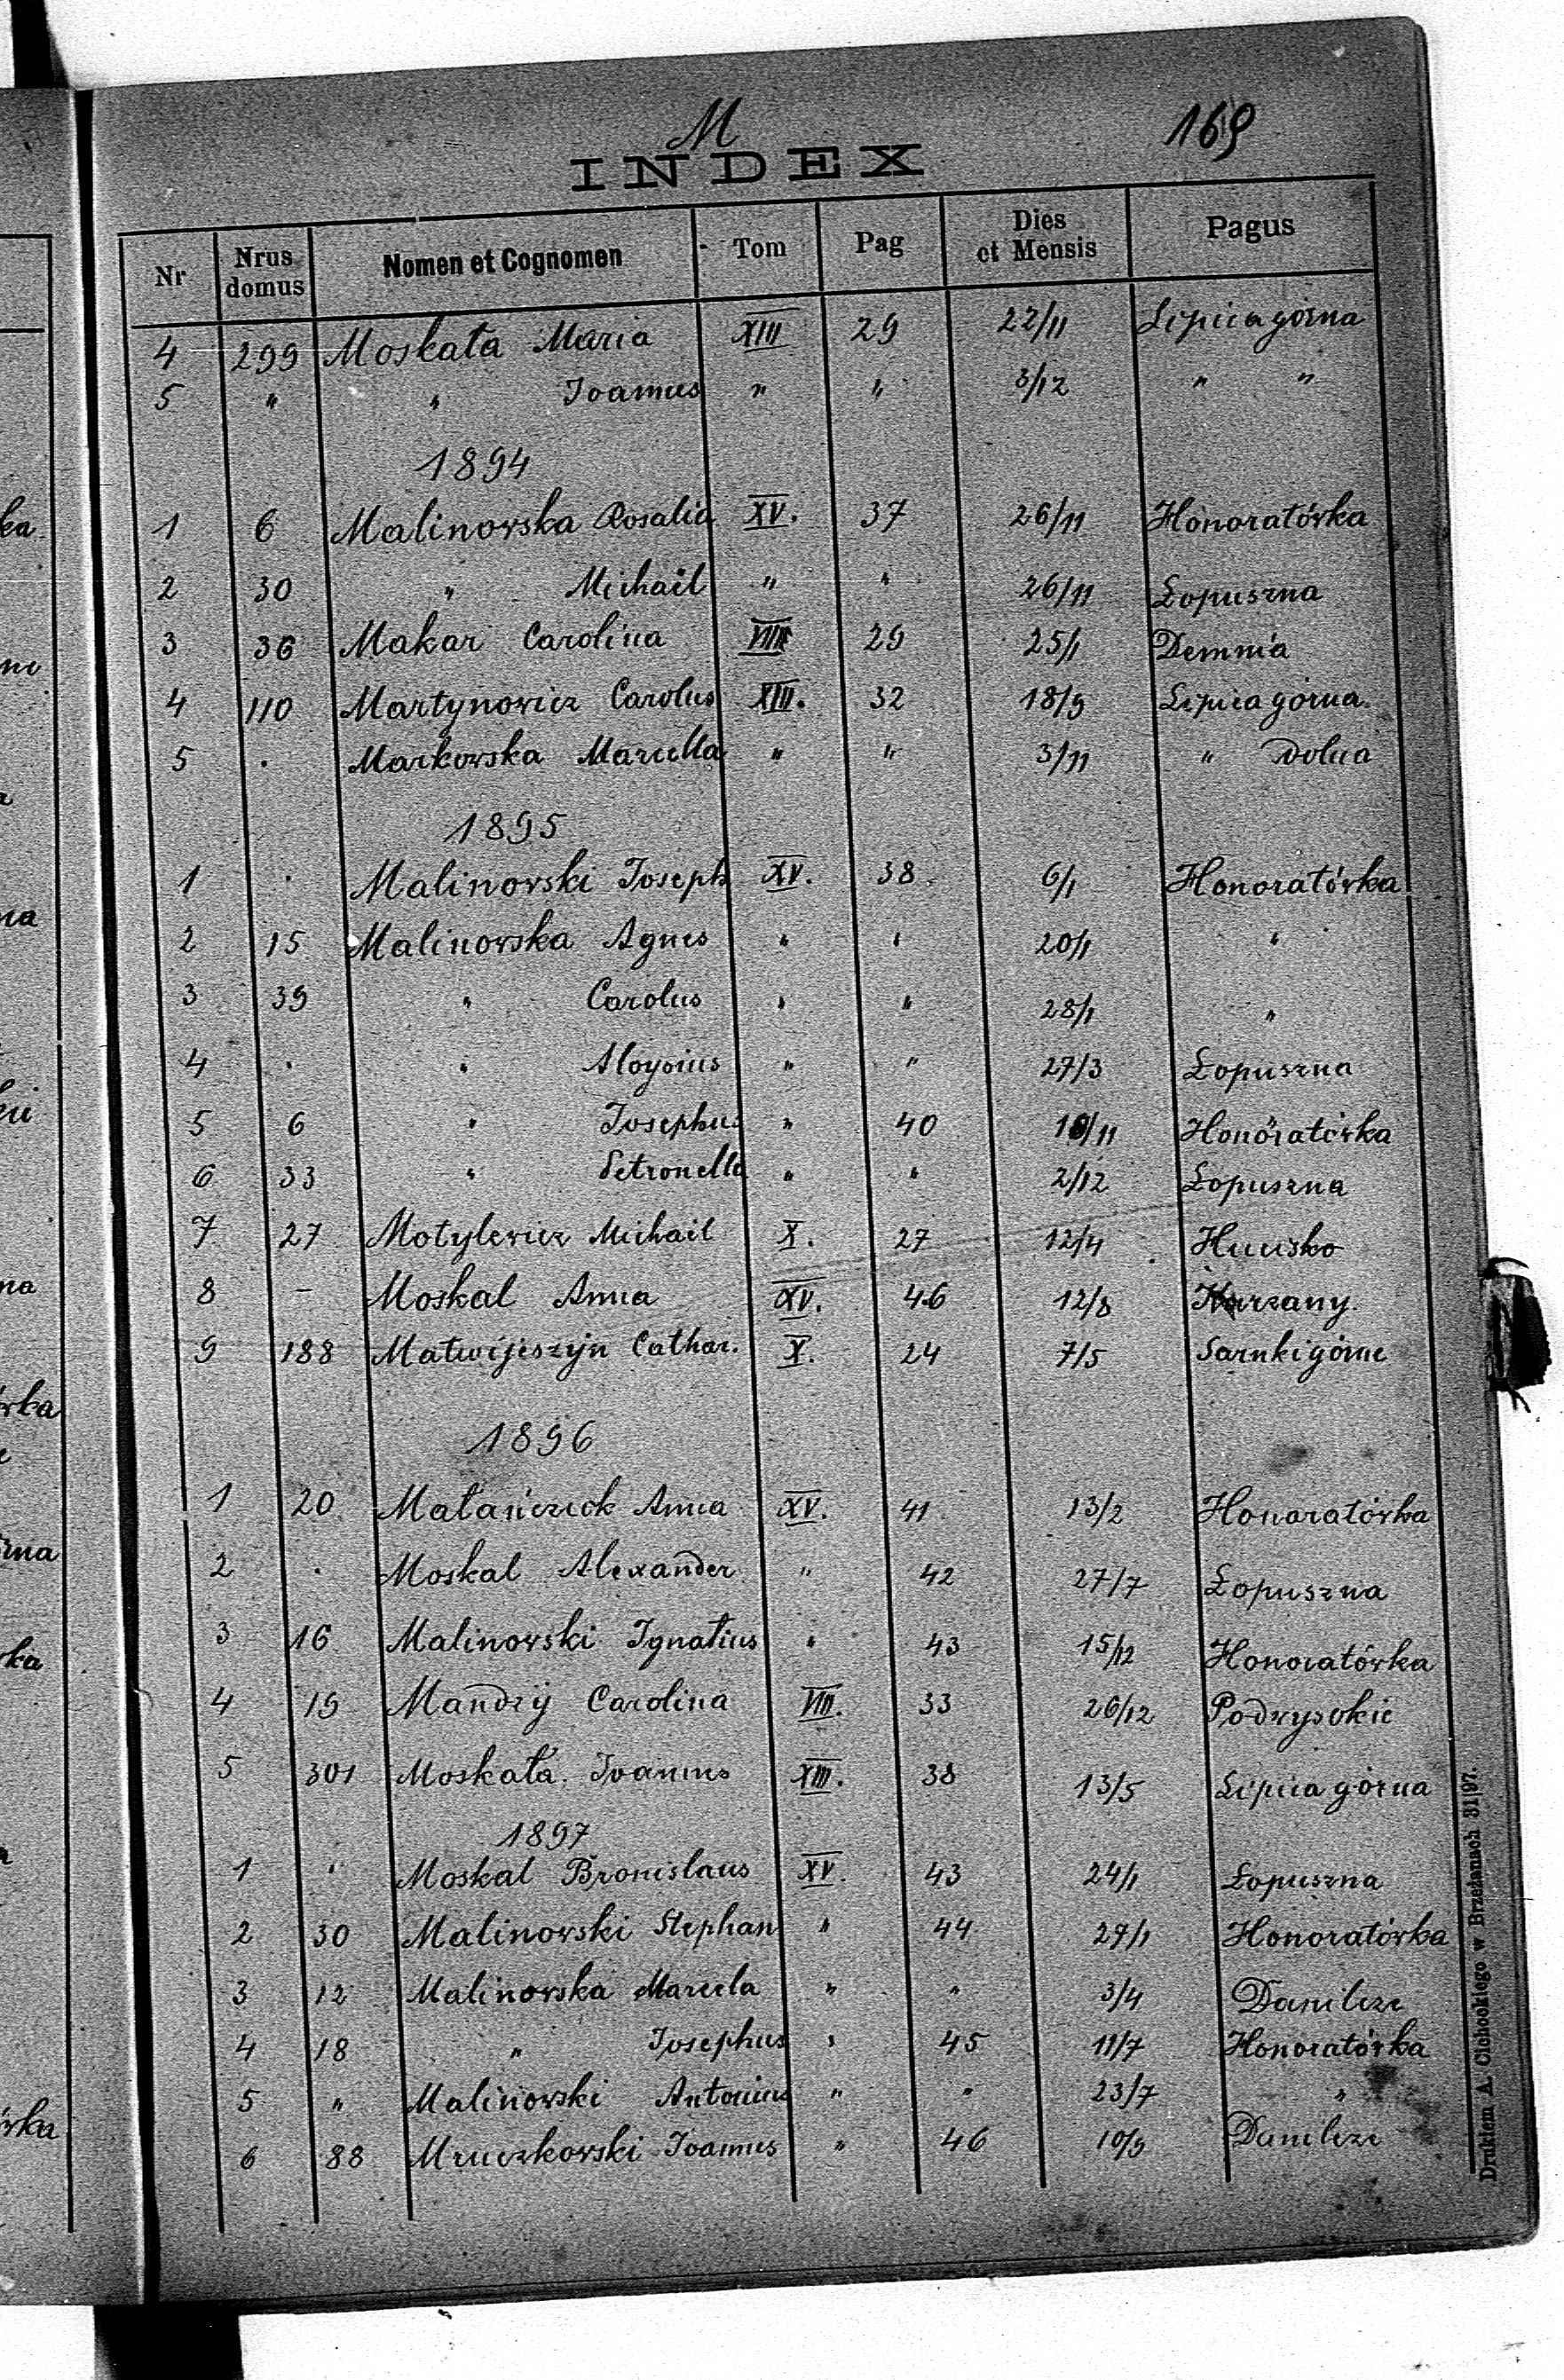 M
169
INDEX
Nr Nrus domus Nomen et Cognomen Tom Pag Dies et Mensis Pagus
4 299 Moskała Maria XIII 29 22/11 Lipica górna
5 " " Joannes " " 3/12 " "
1894
1 6 Malinowska Rosalia XV. 37 26/11 Honoratówka
2 30 " Michail " " 26/11 Łopuszna
3 36 Makar Carolina VIII 29 25/1 Demnia
4 110 Martynowicz Carolus XIII. 32 18/9 Lipica górna
5 . Markowska Marcella " " 3/11 " dolna
1895
1 . Malinowski Joseph XV. 38 6/1 Honoratówka
2 15 Malinowska Agnes " " 20/1 "
3 39 " Carolus " " 28/1 "
4 . " Aloysius " " 27/3 Łopuszna
5 6 " Josephus " 40 /11 Honoratówka
6 33 " Petronella " " 2/12 Łopuszna
7 27 Motylewicz Michail X. 27 12/4 Hucisko
8 - Moskal Anna XV. 46 12/8
9 188 Matwijeszyn Cathar. X. 24 7/5 Sarnki górne
1896
1 20 Matańczeck Anna XV. 41 13/2 Honoratówka
2 . Moskal Alexander " 42 27/7 Łopuszna
3 16 Malinowski Ignatius " 43 15/12 Honoratówka
4 19 Mandzij Carolina VIII. 33 26/12 Podwysokie
5 301 Moskała Joannes XIII. 38 13/5 Lipica górna
1897
1 . Moskal Bronislaus XV. 43 24/1 Łopuszna
2 30 Malinowski Stephan " 44 27/1 Honoratówka
3 12 Malinowska Marcela " " 3/4 Danilcze
4 18 " Josephus " 45 11/7 Honoratówka
5 " Malinowski Antonius " " 23/7 "
6 88 Mruczkowski Joannes " 46 10/9 Danilcze
Drukiem A. Cichockiego w Brzeżanach 31|97.